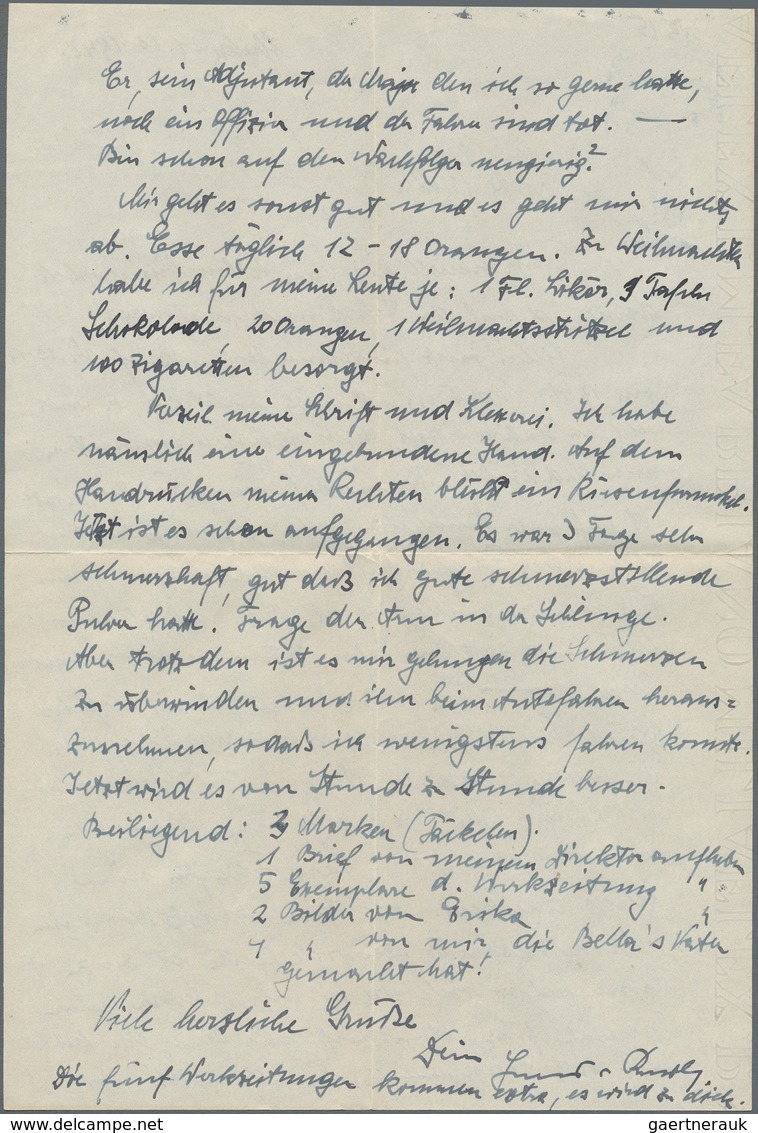 Er, sein Adjutant, der Major den ich so gerne hatte,
noch ein Offizier und der Fahrer sind tot. —
Bin schon auf den Nachfolger neugierig?
Mir geht es sonst gut und es geht mir nichts
ab. Esse täglich 12 - 18 Orangen. Zu Weihnachten
habe ich für meine Leute je: 1 Fl. Likör, 9 Tafeln
Schokolade, 20 Orangen, 1 Weihnachtsstritzel und
100 Zigaretten besorgt.
Verzeih meine Schrift und Kleckserei. Ich habe
nämlich eine eingebundene Hand. Auf dem
Handrücken meiner Rechten blüht ein Riesenfurunkel.
Jetzt ist es schon aufgegangen. Es war 3 Tage sehr
schmerzhaft, gut daß ich gute schmerzstillende
Pulver hatte. Trage den Arm in der Schlinge.
Aber trotzdem ist es mir gelungen die Schmerzen
zu überwinden und ihn beim Autofahren heraus=
zunehmen, sodaß ich wenigstens fahren konnte.
Jetzt wird es von Stunde zu Stunde besser.
Beiliegend: 3 Marken (Päckchen).
1 Brief von meinem Direktor aufheben
5 Exemplare d. Werkzeitung "
2 Bilder von Erika "
4 " von mir, die Bella's Vater
gemacht hat!
Viele herzliche Grüße
Dein
Die fünf Werkzeitungen kommen extra, es wird zu dick.
gaertnerauk